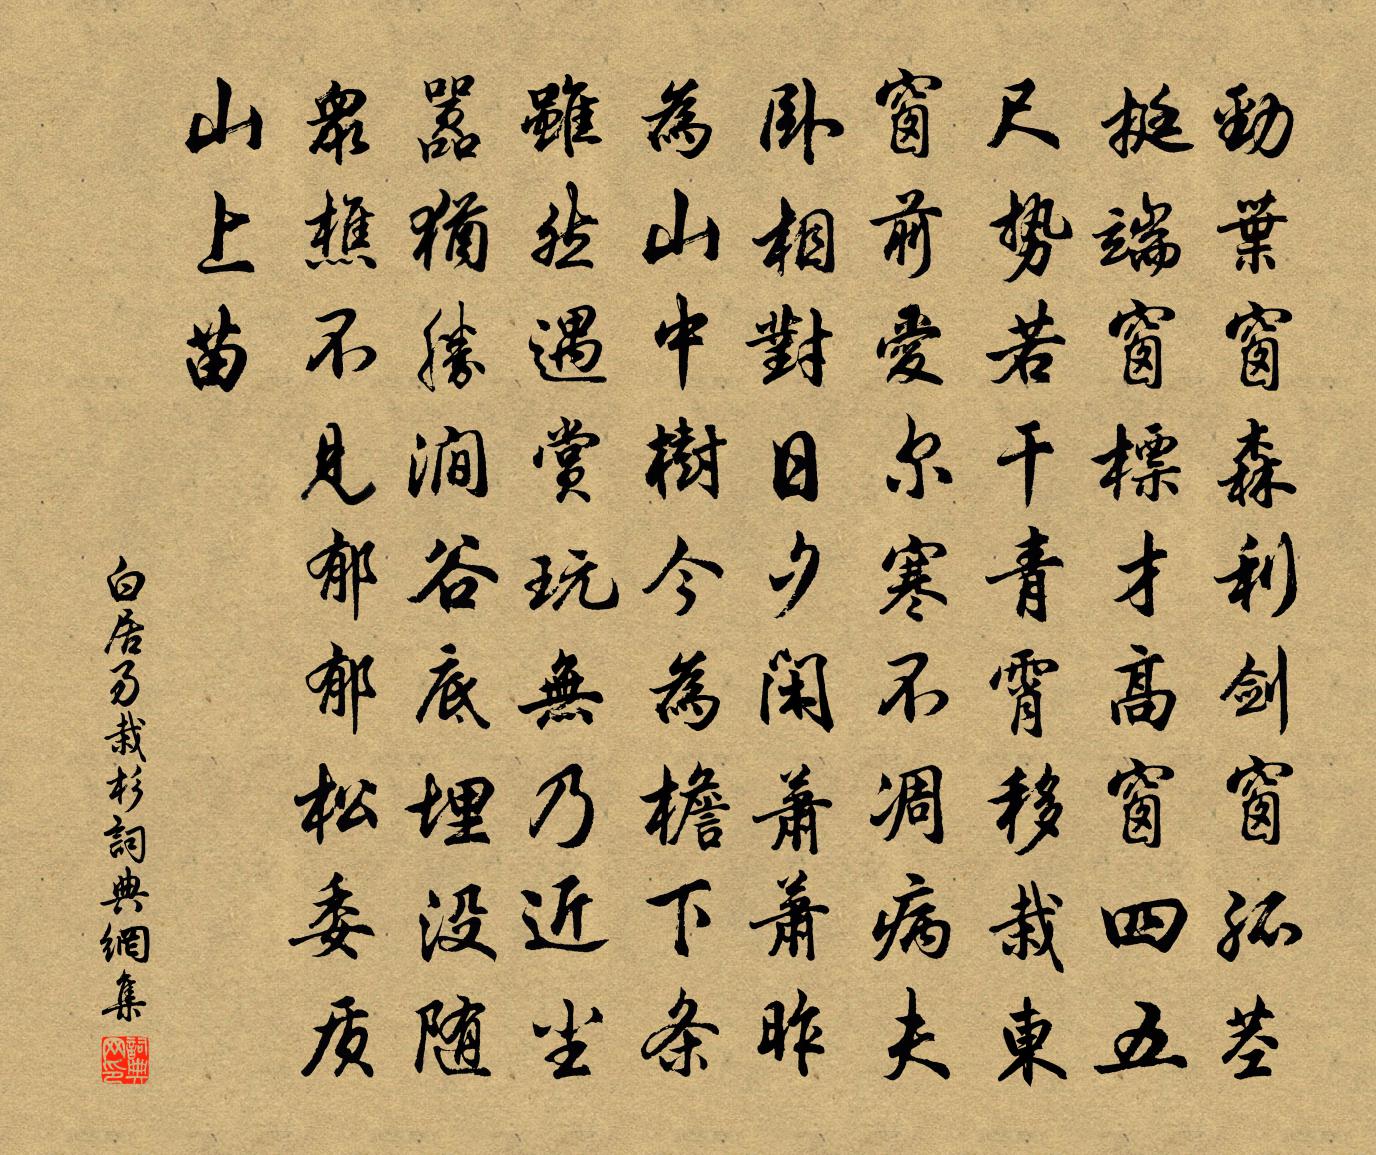 勁葉窗森利劍窗孤茎
挺端窗標才高窗四五
尺勢若干青霄移栽東
窗前愛尔寒不凋病夫
卧相對日夕閑蕭蕭昨
為山中樹今為檐下条
雖然遇賞玩無乃近尘
嚣猶勝澗谷底埋没随
眾樵不見郁郁松委质
山上苗
白居易栽杉詞典網集
詞典网印